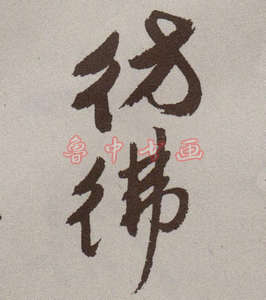 彷
彿
鲁中书画